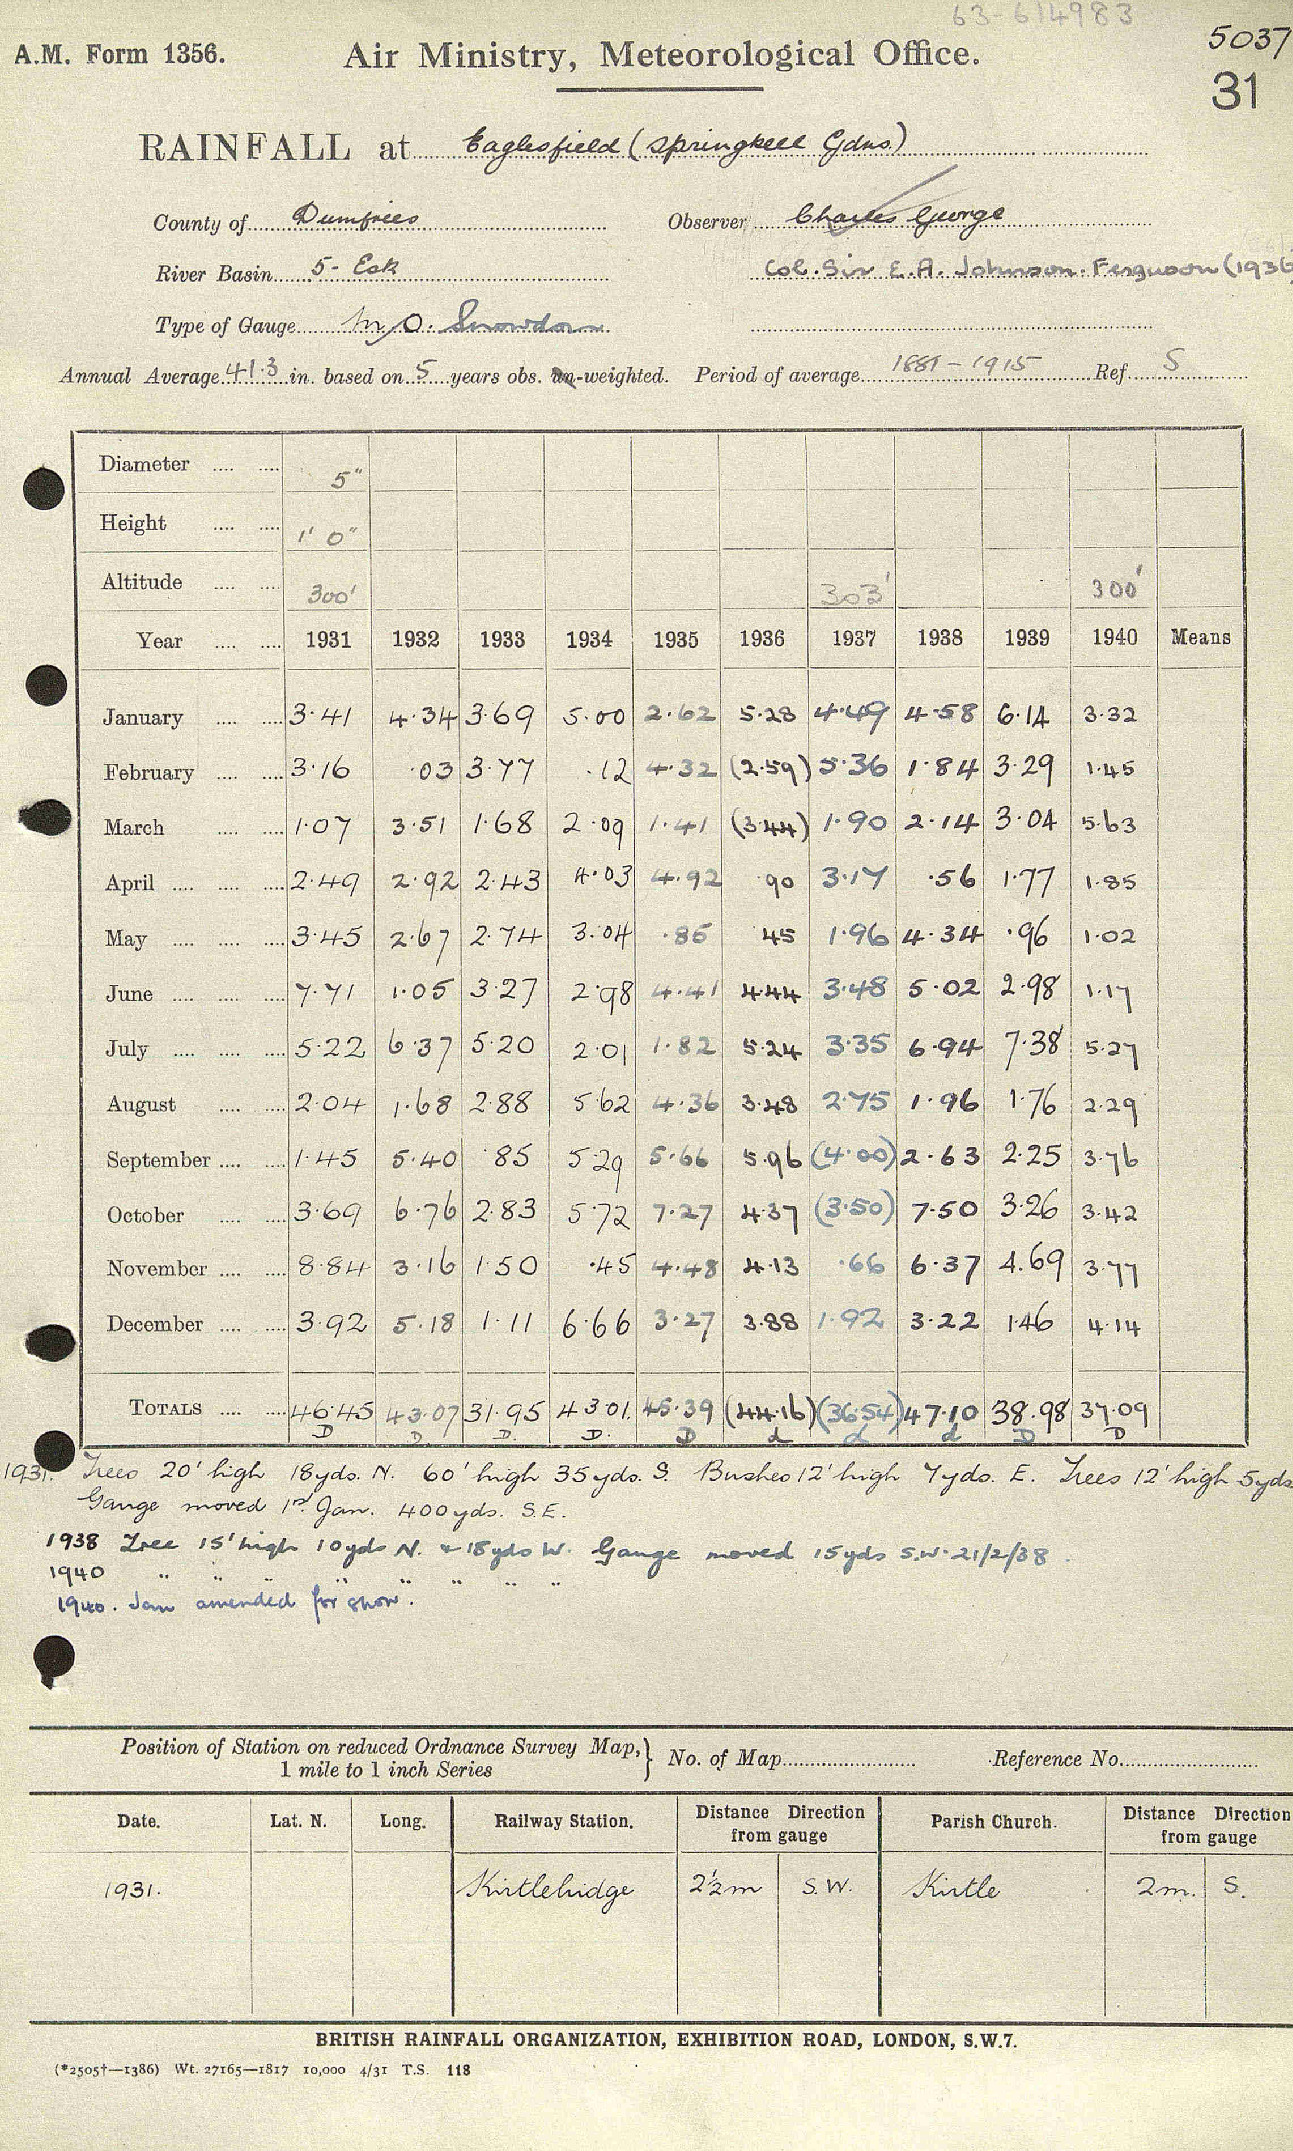 63-614983
A.M. Form 1356. Air Ministry, Meteorological Office. 5037
31
RAINFALL at Eaglesfield (Springkell Gdns)
County of Dumfries Observer Charles George
River Basin 5- Esk Col. Sir E.A. Johnson-Ferguson (1936)
Type of Gauge M.O. Snowdon
Annual Average 41.3 in. based on 5 years obs. un-weighted. Period of average 1881-1915 Ref. S
Diameter 5"
Height 1' 0"
Altitude 300' 303' 300'
Year 1931 1932 1933 1934 1935 1936 1937 1938 1939 1940 Means
January 3.41 4.34 3.69 5.00 2.62 5.28 4.49 4.58 6.14 3.32
February 3.16 .03 3.77 .12 4.32 (2.59) 5.36 1.84 3.29 1.45
March 1.07 3.51 1.68 2.09 1.41 (3.44) 1.90 2.14 3.04 5.63
April 2.49 2.92 2.43 4.03 4.92 90 3.17 .56 1.77 1.85
May 3.45 2.67 2.74 3.04 .85 45 1.96 4.34 .96 1.02
June 7.71 1.05 3.27 2.98 4.41 4.44 3.48 5.02 2.98 1.17
July 5.22 6.37 5.20 2.01 1.82 5.24 3.35 6.94 7.38 5.27
August 2.04 1.68 2.88 5.62 4.36 3.48 2.75 1.96 1.76 2.29
September 1.45 5.40 .85 5.29 5.66 5.96 (4.00) 2.63 2.25 3.76
October 3.69 6.76 2.83 5.72 7.27 4.37 (3.50) 7.50 3.26 3.42
November 8.84 3.16 1.50 .45 4.48 4.13 .66 6.37 4.69 3.77
December 3.92 5.18 1.11 6.66 3.27 3.88 1.92 3.22 1.46 4.14
TOTALS 46.45 43.07 31.95 43.01 45.39 (44.16) (36.54) 47.10 38.98 37.09
D D. D. D. D d d d D D
1931. Trees 20' high 18yds. N. 60' high 35yds. S. Bushes 12' high 7yds. E. Trees 12' high 5yds.
Gauge moved 1st Jan. 400yds. S.E.
1938 Tree 15' high 10yds N. & 18yds W. Gauge moved 15yds S.W. 21/2/38.
1940 " " " " " " " "
1940. Jan amended for "snow".
Position of Station on reduced Ordnance Survey Map, } No. of Map Reference No.
1 mile to 1 inch Series
Date. Lat. N. Long. Railway Station. Distance Direction from gauge Parish Church. Distance Direction from gauge
1931. Kirtlebridge 2½m S.W. Kirtle 2m. S.
BRITISH RAINFALL ORGANIZATION, EXHIBITION ROAD, LONDON, S.W.7.
(*2505†—1386) Wt. 27165—1817 10,000 4/31 T.S. 118